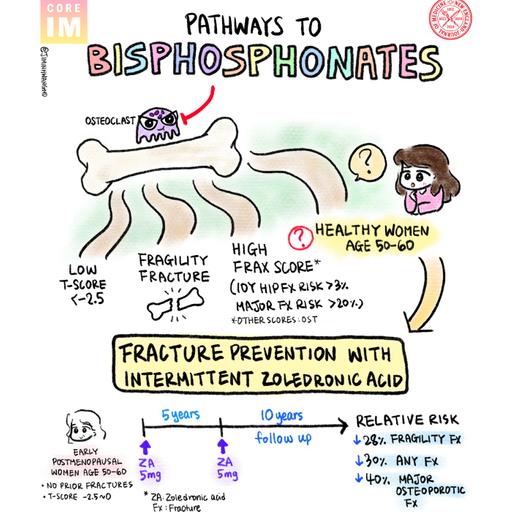 CORE
IM
PATHWAYS TO
BISPHOSPHONATES
OSTEOCLAST
?
?
HEALTHY WOMEN
AGE 50-60
LOW
T-SCORE
<-2.5
FRAGILITY
FRACTURE
HIGH
FRAX SCORE*
(10Y HIP FX RISK >3%
MAJOR FX RISK >20%)
*OTHER SCORES: OST
FRACTURE PREVENTION WITH
INTERMITTENT ZOLEDRONIC ACID
5 years
10 years
follow up
ZA
5mg
ZA
5mg
EARLY
POSTMENOPAUSAL
WOMEN AGE 50-60
• NO PRIOR FRACTURES
• T-SCORE -2.5~0
* ZA: Zoledronic acid
Fx: Fracture
RELATIVE RISK
↓28% FRAGILITY FX
↓30% ANY FX
↓40% MAJOR
OSTEOPOROTIC
FX